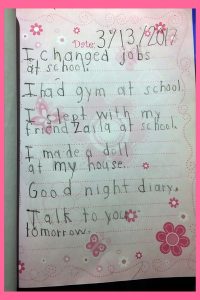 Date: 3/13/2017
I changed jobs
at school.
I had gym at school
I slept with my
friend Zaila at school.
I made a doll
at my house.
Good night diary.
Talk to you
tomorrow.